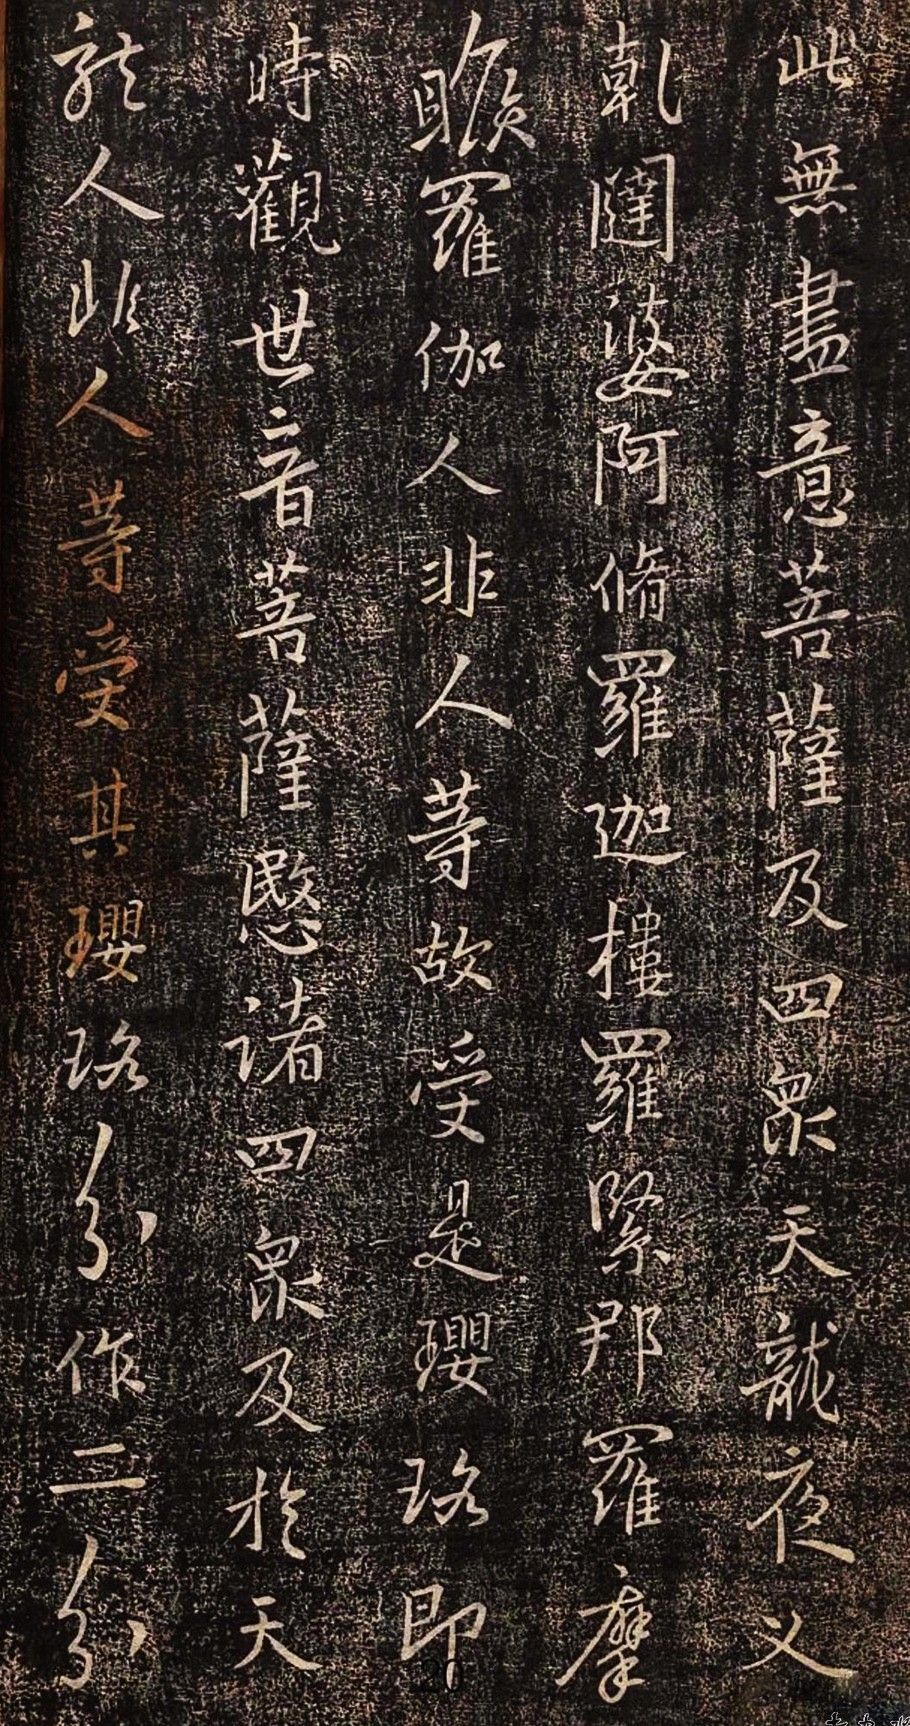 此無盡意菩薩及四眾天龍夜叉
乾闥婆阿脩羅迦樓羅緊那羅摩
睺羅伽人非人等故受是瓔珞即
時觀世音菩薩愍諸四眾及於天
龍人非人等受其瓔珞分作二分